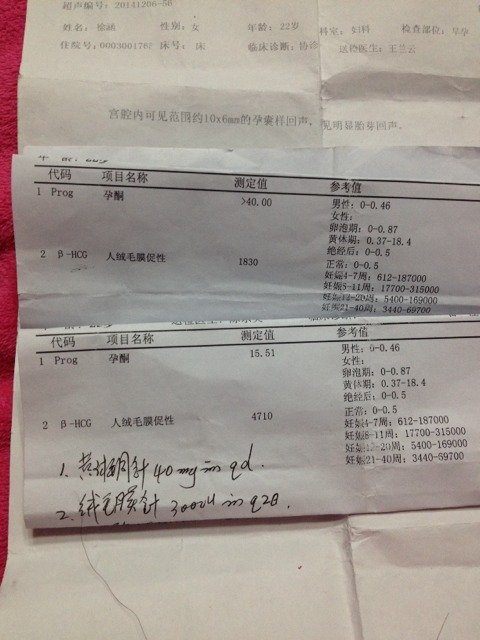 超声编号: 20141206-56
姓名: 徐涵 性别: 女 年龄: 22岁 科室: 妇科 检查部位: 早孕
住院号: 000300176 床号: 床 临床诊断: 协诊 送检医生: 王兰云
宫腔内可见范围约10x6mm的孕囊样回声, 见明显胎芽回声。
代码 项目名称 测定值 参考值
1 Prog 孕酮 >40.00 男性: 0-0.46
女性:
卵泡期: 0-0.87
黄体期: 0.37-18.4
绝经后: 0-0.5
2 β-HCG 人绒毛膜促性 1830 正常: 0-0.5
妊娠4-7周: 612-187000
妊娠5-11周: 17700-315000
妊娠12-20周: 5400-169000
妊娠21-40周: 3440-69700
代码 项目名称 测定值 参考值
1 Prog 孕酮 15.51 男性: 0-0.46
女性:
卵泡期: 0-0.87
黄体期: 0.37-18.4
绝经后: 0-0.5
2 β-HCG 人绒毛膜促性 4710 正常: 0-0.5
妊娠4-7周: 612-187000
妊娠8-11周: 17700-315000
妊娠12-20周: 5400-169000
妊娠21-40周: 3440-69700
1. 黄体酮针 40mg im qd.
2. 绒毛膜针 3000u im q2d.